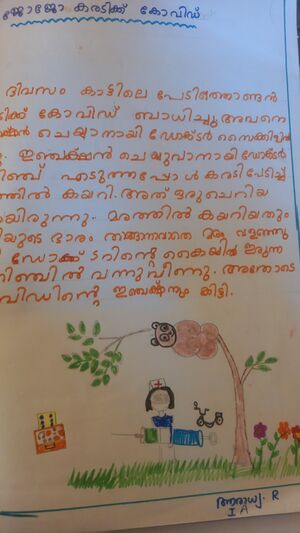 ജോജോ കരടിക്ക് കോവിഡ്
ദിവസം കാട്ടിലെ പേടിത്തൊണ്ടൻ
ടിക്ക് കോവിഡ് ബാധിച്ചു അവനെ
ക്ഷൻ ചെയ്യാനായി ഡോക്ടർ സൈക്കിളിൽ
ഇഞ്ചക്ഷൻ ചെയ്യുവാനായി ഡോക്ടർ
ിഞ്ച് എടുത്തപ്പോൾ കരടി പേടിച്ച്
ത്തിൽ കയറി. അത് ഒരു ചെറിയ
യിരുന്നു. മരത്തിൽ കയറിയതും
ിയുടെ ഭാരം താങ്ങാനാവാതെ മരം വളഞ്ഞു
ഡോക്ടറിന്റെ കൈയിൽ ഇരുന്ന
ിഞ്ചിൽ വന്നു വീണു. അതോടെ
വിഡിന്റെ ഇഞ്ചക്ഷനും കിട്ടി.
R
I A